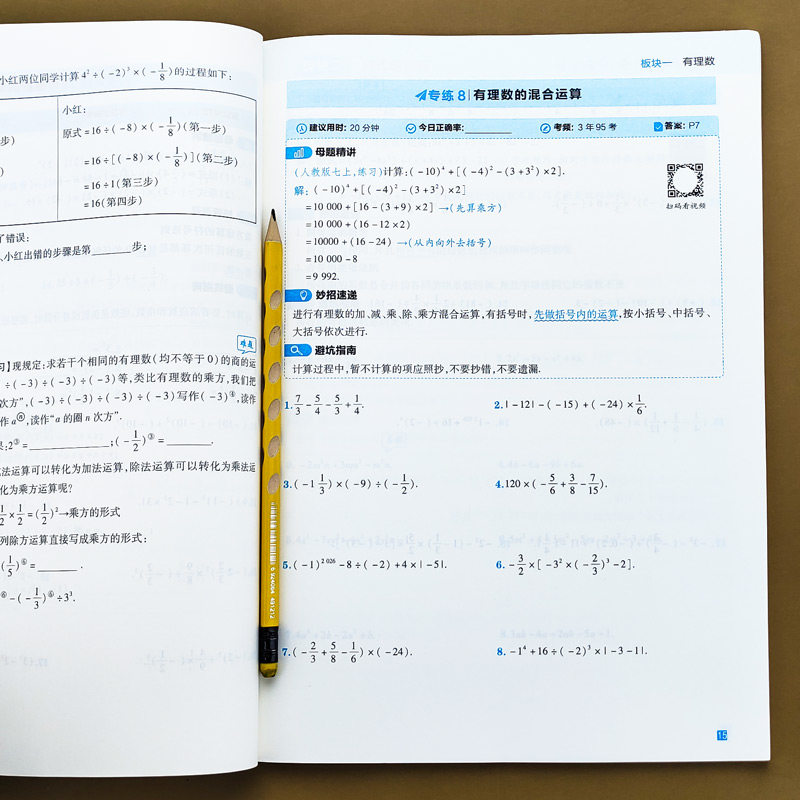 小红两位同学计算 4²÷(-2)³×(-1/8)的过程如下：
小红：
步)
原式=16÷(-8)×(-1/8)(第一步)
=16÷[(-8)×(-1/8)](第二步)
=16÷1(第三步)
=16(第四步)
了错误：
小红出错的步骤是第________步；
难题
习】现规定：求若干个相同的有理数(均不等于0)的商的运
÷(-3)÷(-3)÷(-3)等,类比有理数的乘方,我们把
次方”,(-3)÷(-3)÷(-3)÷(-3)写作(-3)④,读作
作aⓝ,读作“a的圈n次方”.
果:2③=________;(-1/2)③=________.
法运算可以转化为加法运算,除法运算可以转化为乘法运
化为乘方运算呢?
1/2×1/2=(1/2)²→乘方的形式
列除方运算直接写成乘方的形式：
(1/5)⑥=________.
⑥-(-1/3)⑥÷3³.
板块一 有理数
专练8 有理数的混合运算
建议用时：20分钟 今日正确率：________ 考频：3年95考 答案：P7
母题精讲
(人教版七上,练习)计算：(-10)⁴+[(-4)²-(3+3²)×2].
解：(-10)⁴+[(-4)²-(3+3²)×2]
=10 000+[16-(3+9)×2]→(先算乘方)
=10 000+(16-12×2)
=10000+(16-24)→(从内向外去括号)
=10 000-8
=9 992.
扫码看视频
妙招速递
进行有理数的加、减、乘、除、乘方混合运算,有括号时,先做括号内的运算,按小括号、中括号、
大括号依次进行.
避坑指南
计算过程中,暂不计算的项应照抄,不要抄错,不要遗漏.
1. 7/3-5/4-5/3+1/4.
2. |-12|-(-15)+(-24)×1/6.
3. (-1 1/3)×(-9)÷(-1/2).
4. 120×(-5/6+3/8-7/15).
5. (-1)²⁰²⁶-8÷(-2)+4×|-5|.
6. -3/2×[-3²×(-2/3)³-2].
7. (-2/3+5/8-1/6)×(-24).
8. -1⁴+16÷(-2)³×|-3-1|.
15
6 924064 491212